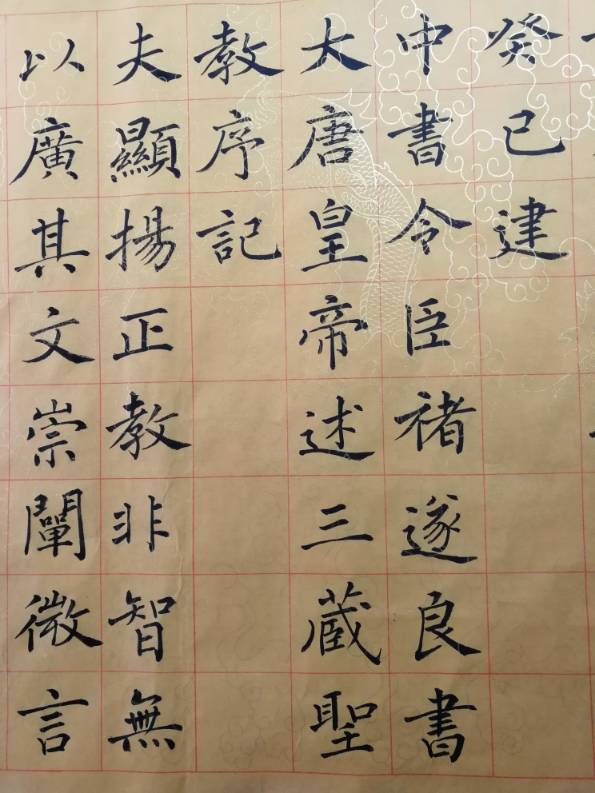 癸巳建
中書令臣褚遂良書
大唐皇帝述三藏聖
教序記
夫顯揚正教非智無
以廣其文崇闡微言